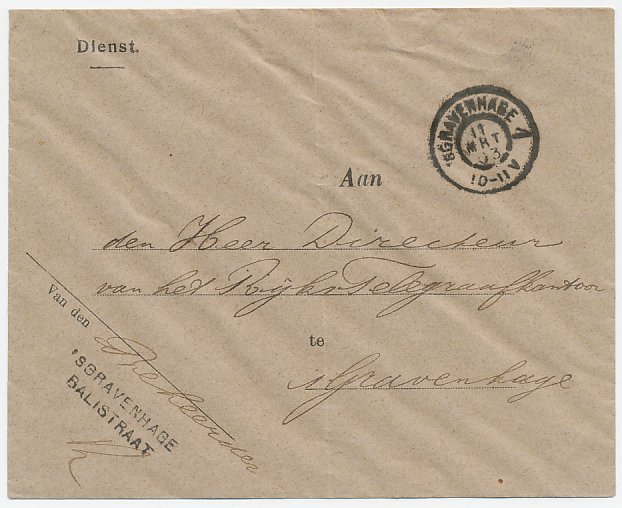 Dienst.
'SGRAVENHAGE 1
11
MRT
03
10-11V
Aan
den Heer Directeur
van het Rijks Telegraafkantoor
te
's Gravenhage
Van den
Beheerder
'SGRAVENHAGE
BALISTRAAT